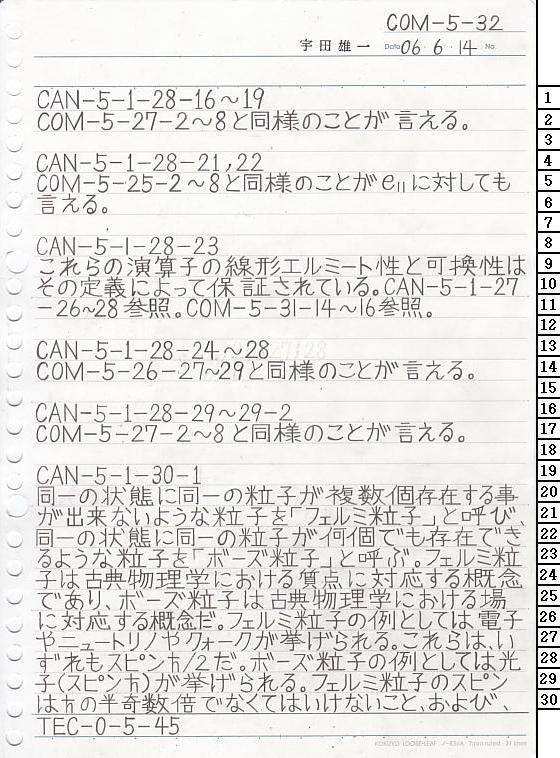 COM-5-32
宇田雄一 Date 06・6・14 No.
CAN-5-1-28-16～19
COM-5-27-2～8と同様のことが言える。
CAN-5-1-28-21,22
COM-5-25-2～8と同様のことがeⅡに対しても
言える。
CAN-5-1-28-23
これらの演算子の線形エルミート性と可換性は
その定義によって保証されている。CAN-5-1-27
-26～28参照。COM-5-31-14～16参照。
CAN-5-1-28-24～28
COM-5-26-27～29と同様のことが言える。
CAN-5-1-28-29～29-2
COM-5-27-2～8と同様のことが言える。
CAN-5-1-30-1
同一の状態に同一の粒子が複数個存在する事
が出来ないような粒子を「フェルミ粒子」と呼び、
同一の状態に同一の粒子が何個でも存在でき
るような粒子を「ボーズ粒子」と呼ぶ。フェルミ粒
子は古典物理学における質点に対応する概念
であり、ボーズ粒子は古典物理学における場
に対応する概念だ。フェルミ粒子の例としては電子
やニュートリノやクォークが挙げられる。これらは、い
ずれもスピンℏ/2だ。ボーズ粒子の例としては光
子(スピンℏ)が挙げられる。フェルミ粒子のスピン
はℏの半奇数倍でなくてはいけないこと、および、
TEC-0-5-45
KOKUYO LOOSE-LEAF ノ-836A 7mm ruled 31 lines
1
2
3
4
5
6
7
8
9
10
11
12
13
14
15
16
17
18
19
20
21
22
23
24
25
26
27
28
29
30